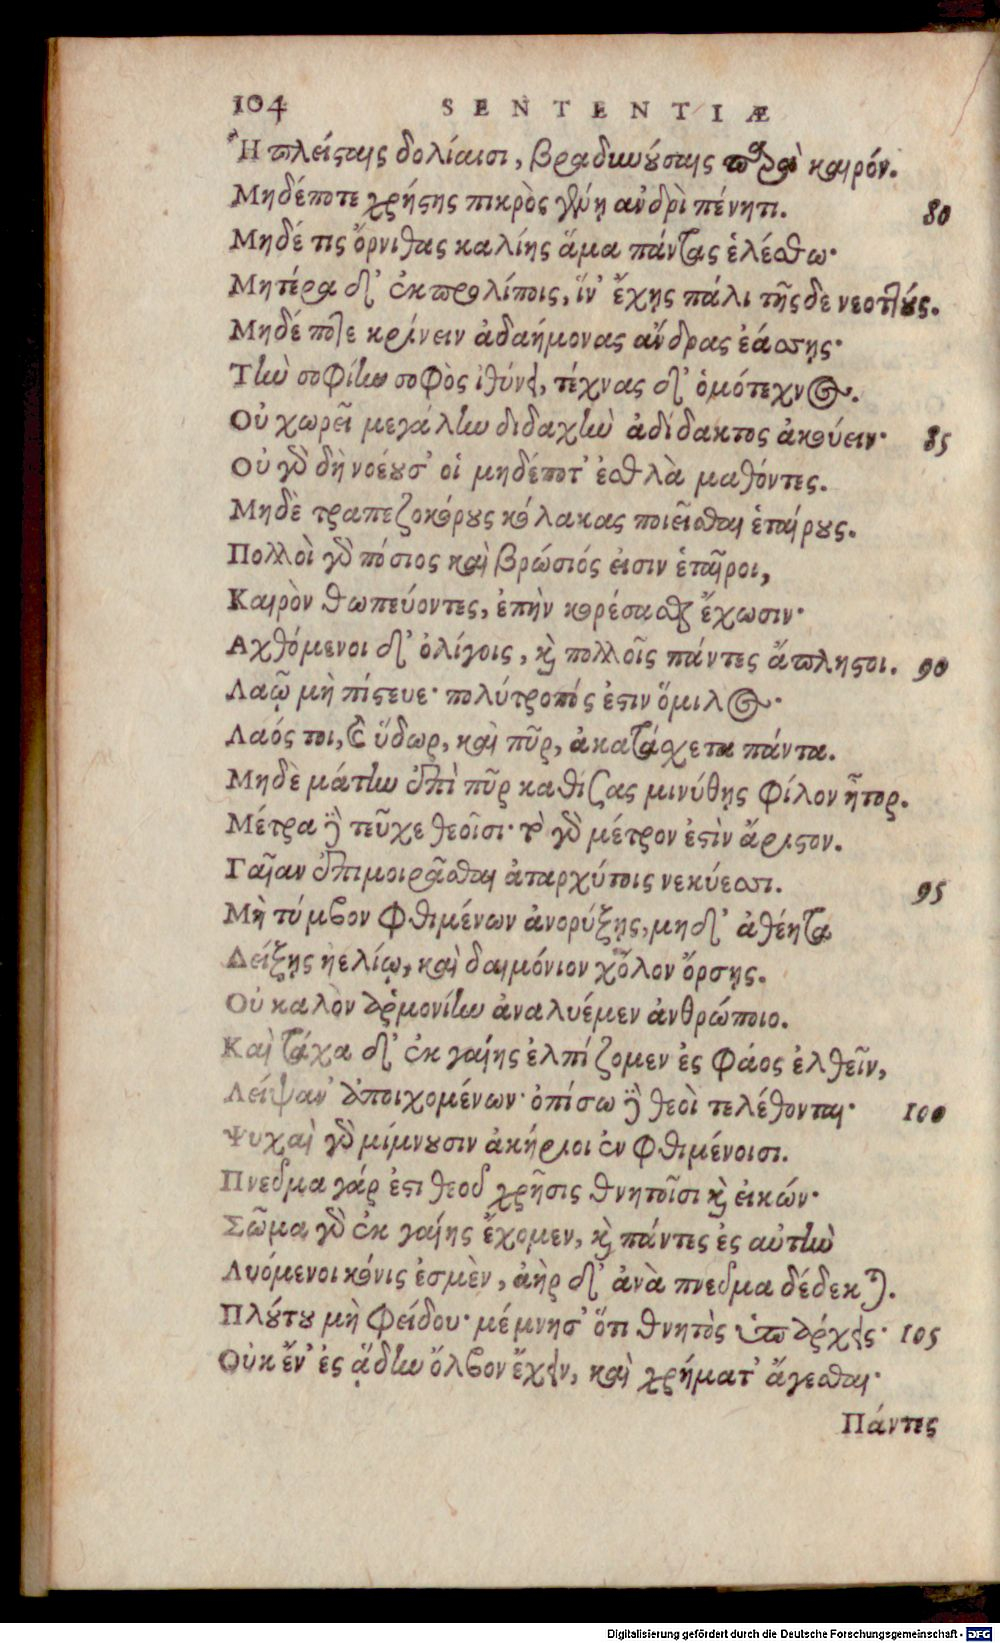 104 SENTENTIÆ
Ἢ πλείσταις δολίαισι, βραδυνούσαις παρὰ καιρόν.
Μηδέποτε χρήστης πικρὸς γένῃ ἀνδρὶ πένητι. 80
Μηδέ τις ὄρνιθας καλίης ἅμα πάντας ἑλέσθω·
Μητέρα δ' ἐκπρολίποις, ἵν' ἔχῃς πάλι τῆσδε νεοττούς.
Μηδέποτε κρίνειν ἀδαήμονας ἄνδρας ἐάσῃς·
Τὴν σοφίην σοφὸς ἰθύνει, τέχνας δ' ὁμότεχνος.
Οὐ χωρεῖ μεγάλην διδαχὴν ἀδίδακτος ἀκούειν· 85
Οὐ γὰρ δὴ νοέουσ' οἱ μηδέποτ' ἐσθλὰ μαθόντες.
Μηδὲ τραπεζοκόρους κόλακας ποιεῖσθαι ἑταίρους.
Πολλοὶ γὰρ πόσιος καὶ βρώσιός εἰσιν ἑταῖροι,
Καιρὸν θωπεύοντες, ἐπὴν κορέσασθαι ἔχωσιν·
Αχθόμενοι δ' ὀλίγοις, καὶ πολλοῖς πάντες ἄπληστοι. 90
Λαῷ μὴ πίστευε· πολύτροπός ἐστιν ὅμιλος·
Λαός τοι, καὶ ὕδωρ, καὶ πῦρ, ἀκατάσχετα πάντα.
Μηδὲ μάτην ἐπὶ πῦρ καθίζας μινύθῃς φίλον ἦτορ.
Μέτρα δὲ τεῦχε θεοῖσι· τὸ γὰρ μέτρον ἐστὶν ἄριστον.
Γαῖαν ἐπιμοιρᾶσθαι ἀταρχύτοις νεκύεσσι. 95
Μὴ τύμβον φθιμένων ἀνορύξῃς, μηδ' ἀθέητα
Δείξῃς ἠελίῳ, καὶ δαιμόνιον χόλον ὄρσῃς.
Οὐ καλὸν ἁρμονίην ἀναλυέμεν ἀνθρώποιο.
Καὶ τάχα δ' ἐκ γαίης ἐλπίζομεν ἐς φάος ἐλθεῖν,
Λείψαν' ἀποιχομένων· ὀπίσω δὲ θεοὶ τελέθονται· 100
Ψυχαὶ γὰρ μίμνουσιν ἀκήριοι ἐν φθιμένοισι.
Πνεῦμα γάρ ἐστι θεοῦ χρῆσις θνητοῖσι καὶ εἰκών·
Σῶμα γὰρ ἐκ γαίης ἔχομεν, καὶ πάντες ἐς αὐτὴν
Λυόμενοι κόνις ἐσμὲν, ἀὴρ δ' ἀνὰ πνεῦμα δέδεκται.
Πλούτου μὴ φείδου· μέμνησ' ὅτι θνητὸς ὑπάρχεις· 105
Οὐκ ἔν' ἐς ᾅδην ὄλβον ἔχειν, καὶ χρήματ' ἄγεσθαι·
Πάντες
Digitalisierung gefördert durch die Deutsche Forschungsgemeinschaft - DFG